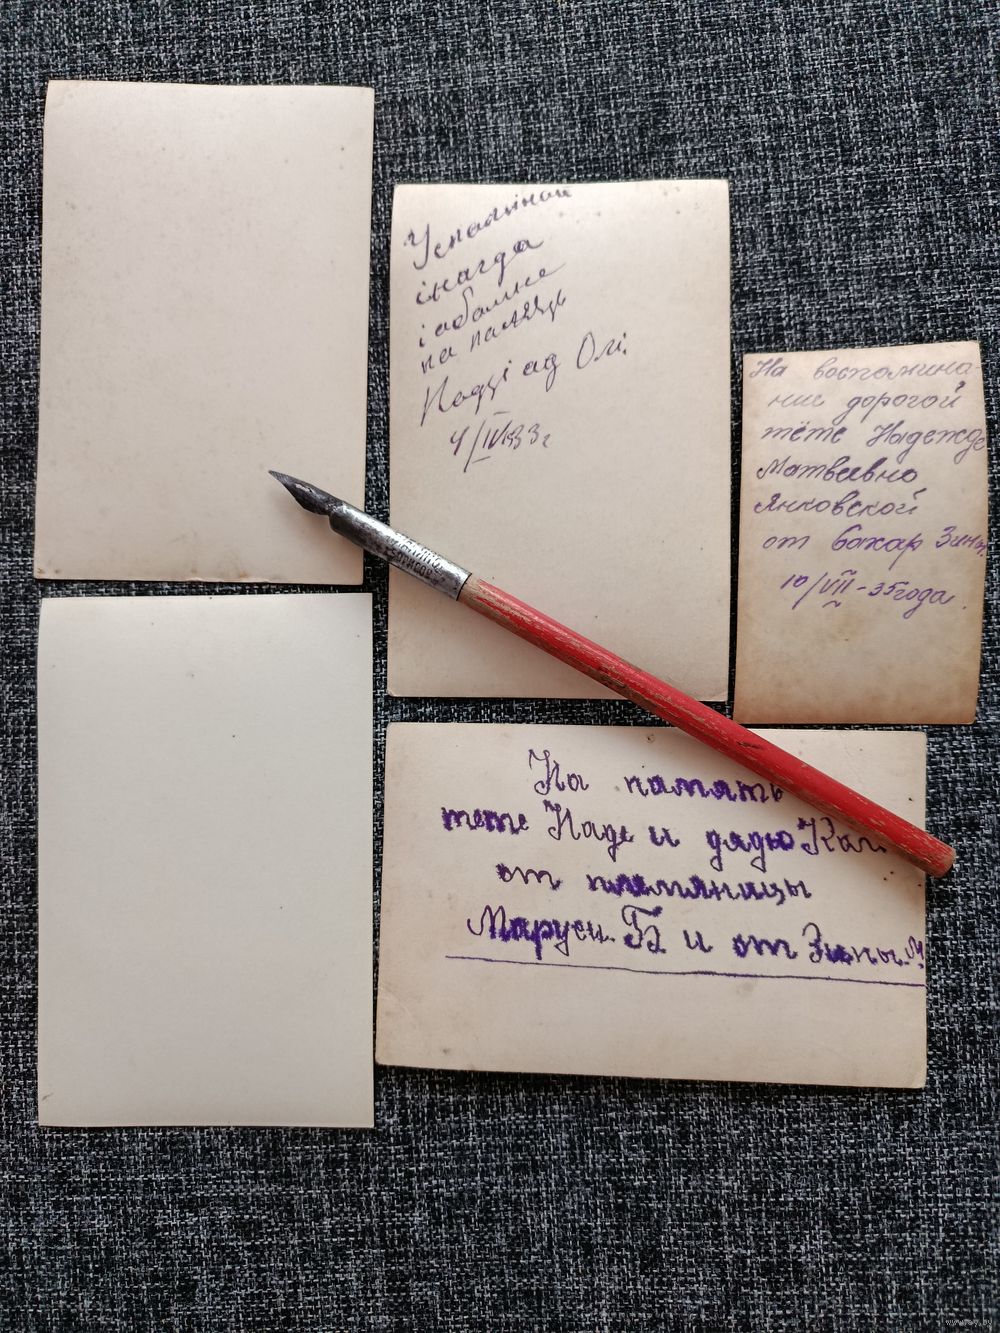 Успамінай
інагда
і
на память
Надзі ад Олі.
4/IV 33 г
На воспомина-
ние дорогой
тёте Надежде
Матвеевно
Янковской
от Бахар Зины
10/VII - 35 года.
На память
тете Наде и дядю
от племяницы
Маруси. Б и от Зины.